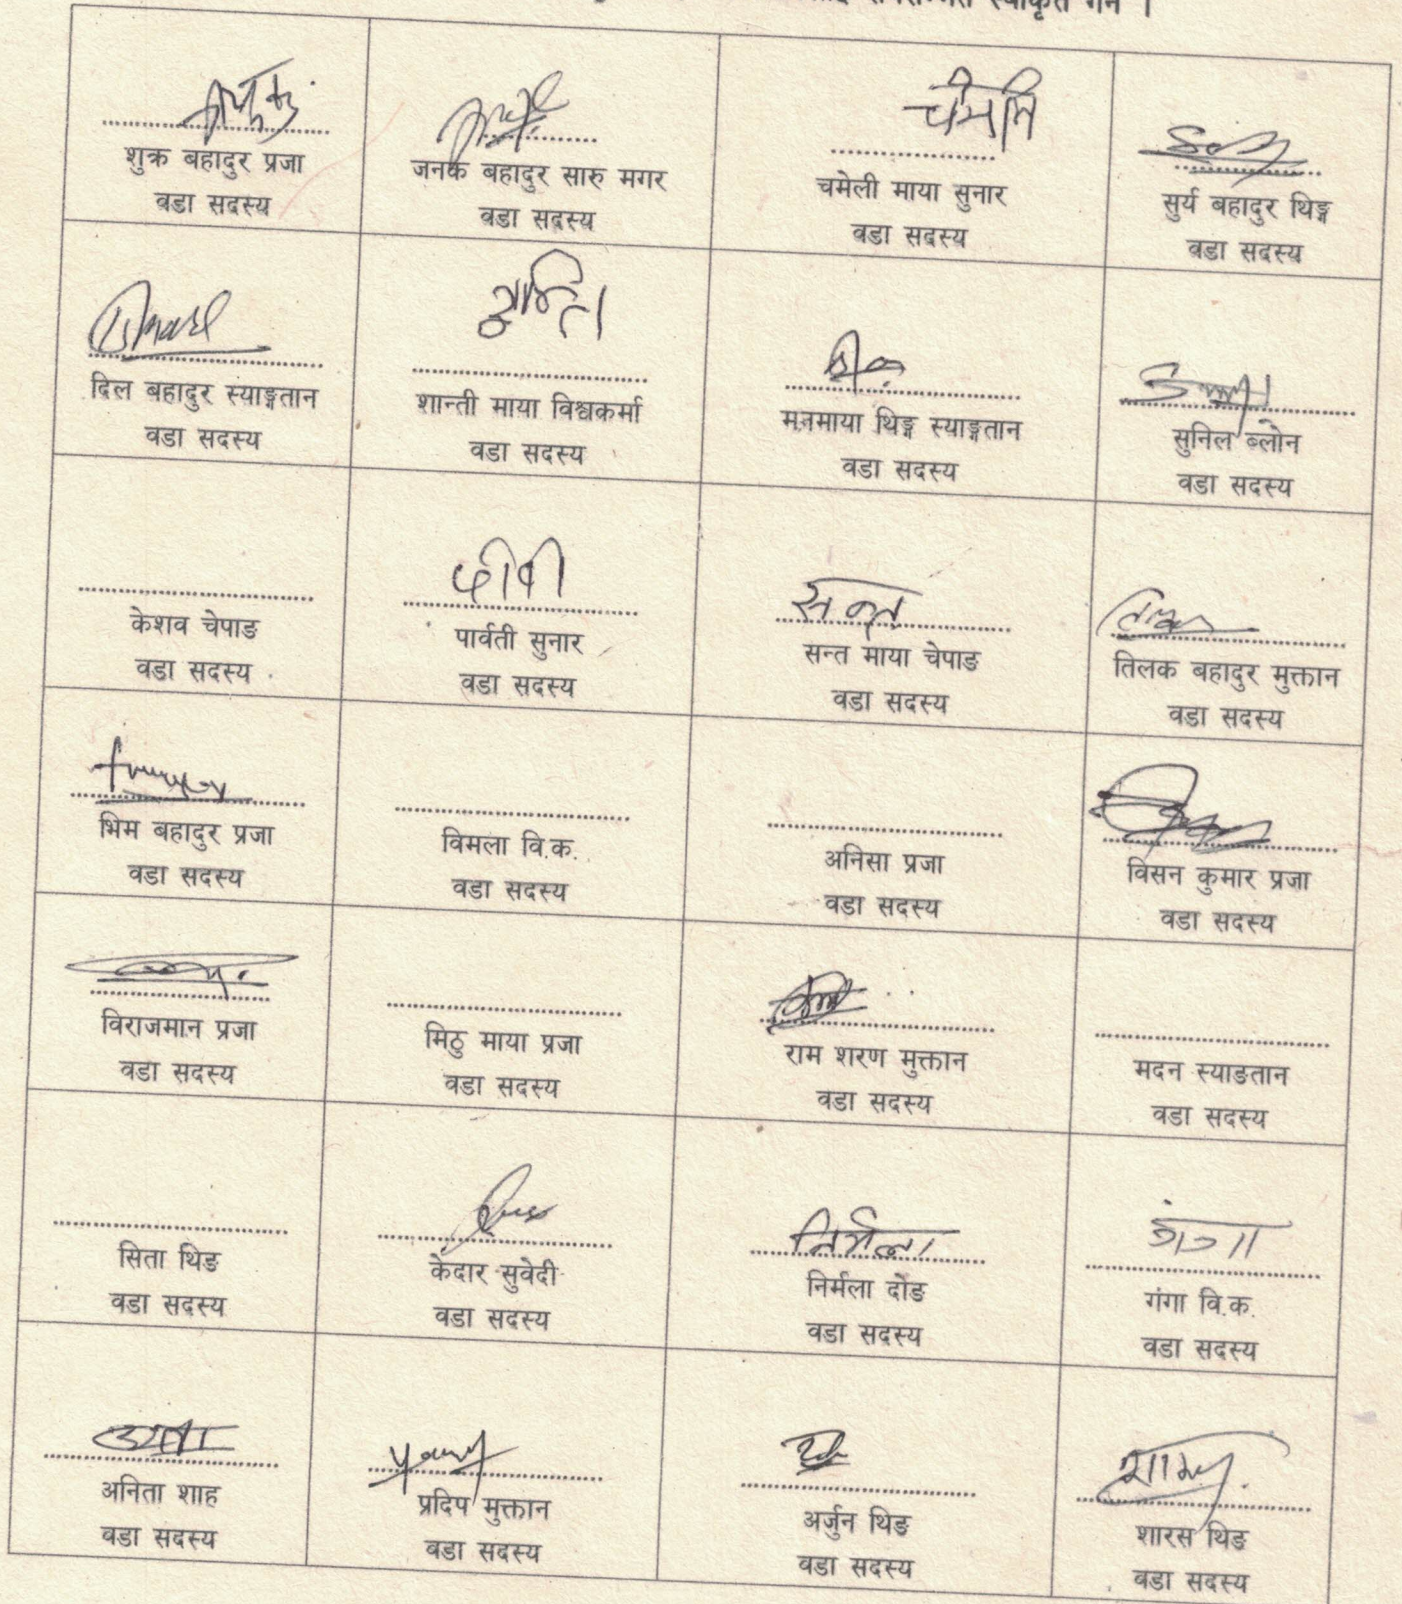 स्वीकृत गर्ने ।
शुक्र बहादुर प्रजा
वडा सदस्य
जनक बहादुर सारु मगर
वडा सदस्य
चमेली
चमेली माया सुनार
वडा सदस्य
सुर्य बहादुर थिङ्ग
वडा सदस्य
दिल बहादुर स्याङ्गतान
वडा सदस्य
शान्ति
शान्ती माया विश्वकर्मा
वडा सदस्य
मनमाया थिङ्ग स्याङ्गतान
वडा सदस्य
सुनिल ब्लोन
वडा सदस्य
केशव चेपाङ
वडा सदस्य
पार्वती सुनार
वडा सदस्य
सन्त
सन्त माया चेपाङ
वडा सदस्य
तिलक बहादुर मुक्तान
वडा सदस्य
भिम बहादुर प्रजा
वडा सदस्य
विमला वि.क.
वडा सदस्य
अनिसा प्रजा
वडा सदस्य
विसन कुमार प्रजा
वडा सदस्य
विराजमान प्रजा
वडा सदस्य
मिठु माया प्रजा
वडा सदस्य
राम शरण मुक्तान
वडा सदस्य
मदन स्याङतान
वडा सदस्य
सिता थिङ
वडा सदस्य
केदार सुवेदी
वडा सदस्य
निर्मला
निर्मला दोङ
वडा सदस्य
गंगा
गंगा वि.क.
वडा सदस्य
अनिता शाह
वडा सदस्य
प्रदिप मुक्तान
वडा सदस्य
अर्जुन थिङ
वडा सदस्य
शारस थिङ
वडा सदस्य